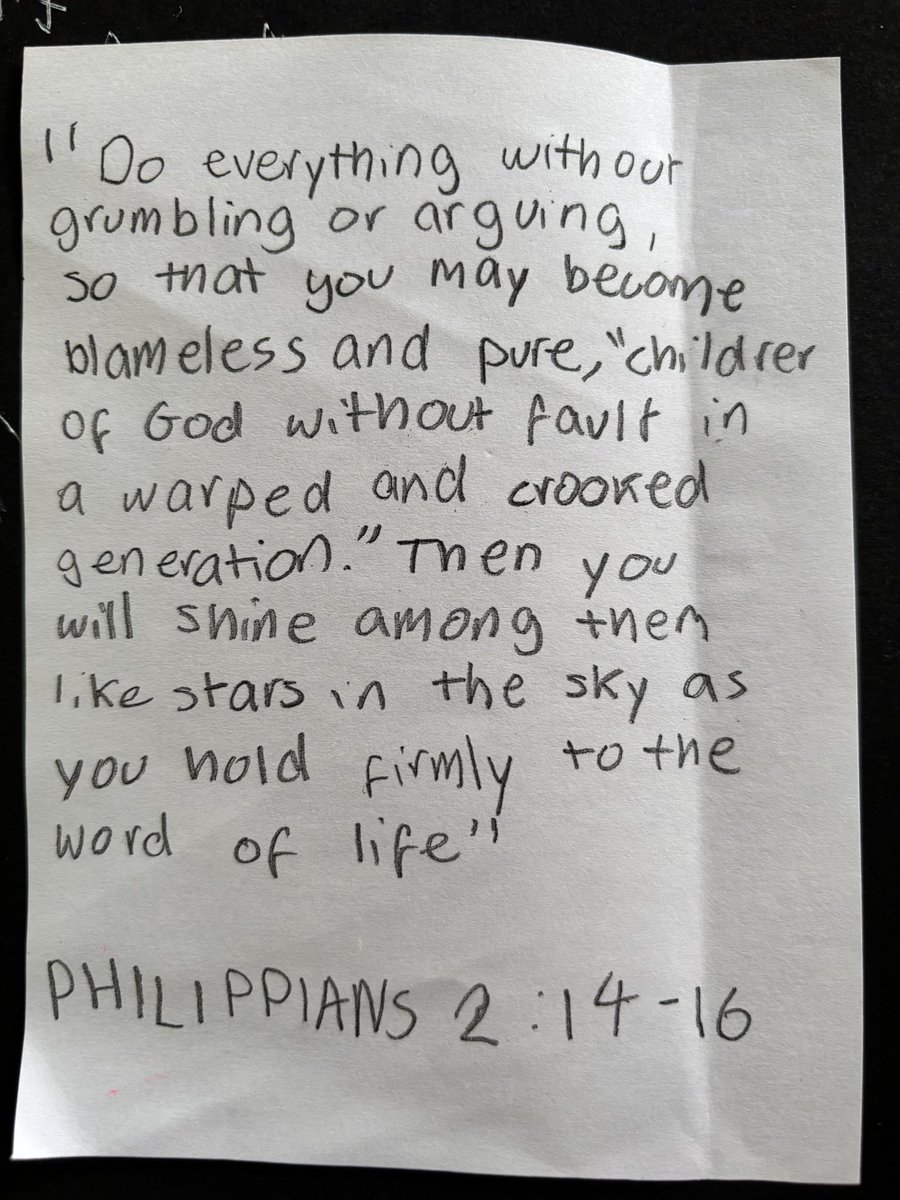 "Do everything without
grumbling or arguing,
so that you may become
blameless and pure, "children
of God without fault in
a warped and crooked
generation." Then you
will shine among them
like stars in the sky as
you hold firmly to the
word of life"
PHILIPPIANS 2:14-16